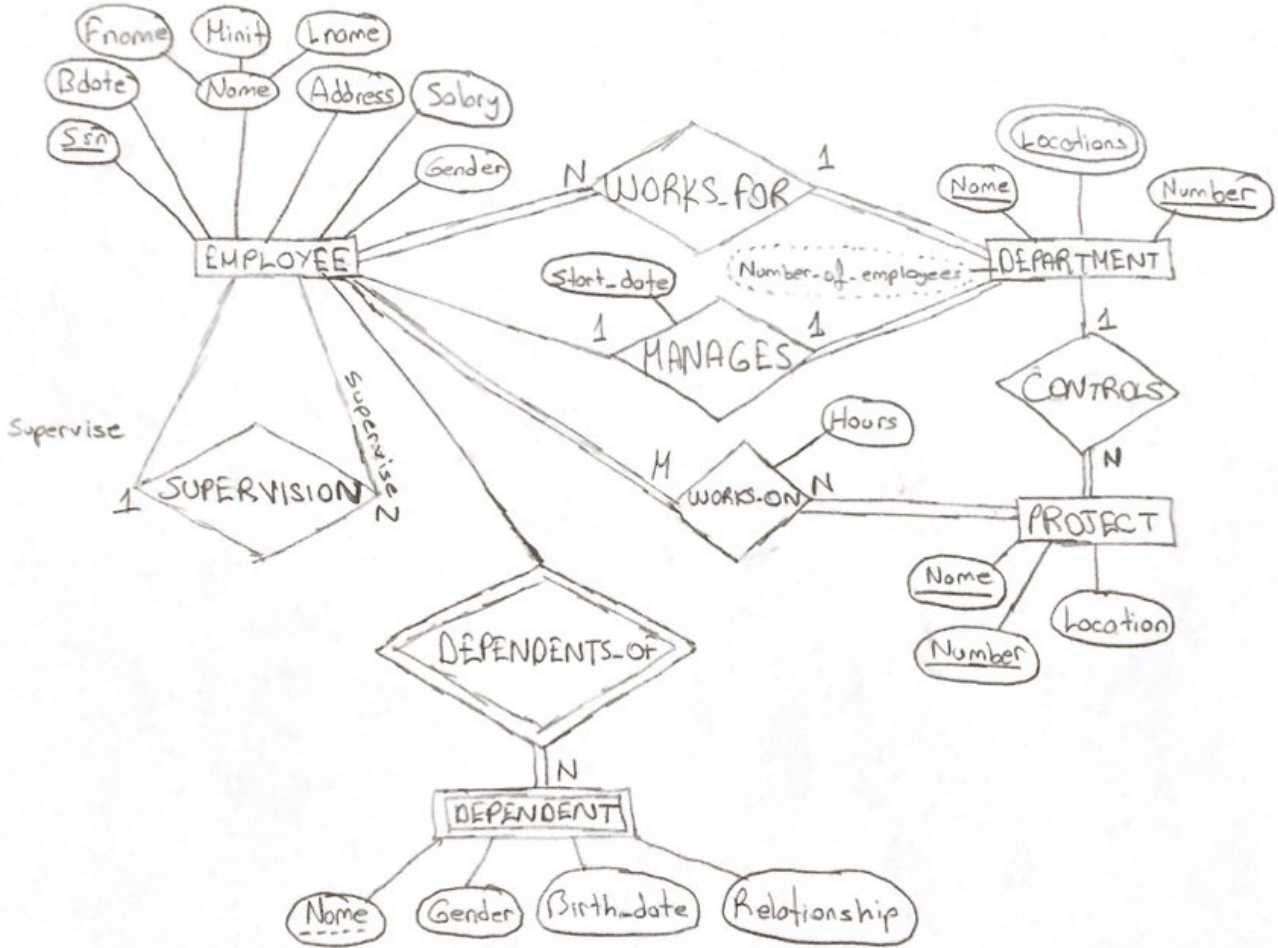 Fname
Minit
Lname
Bdate
Name
Address
Salary
Ssn
Gender
EMPLOYEE
N
WORKS_FOR
1
Locations
Name
Number
DEPARTMENT
Number_of_employees
Start_date
1
MANAGES
1
1
CONTROLS
N
Supervise
Supervise
1
SUPERVISION
N
Hours
M
WORKS-ON
N
PROJECT
Name
Number
Location
DEPENDENTS_OF
N
DEPENDENT
Name
Gender
Birth_date
Relationship